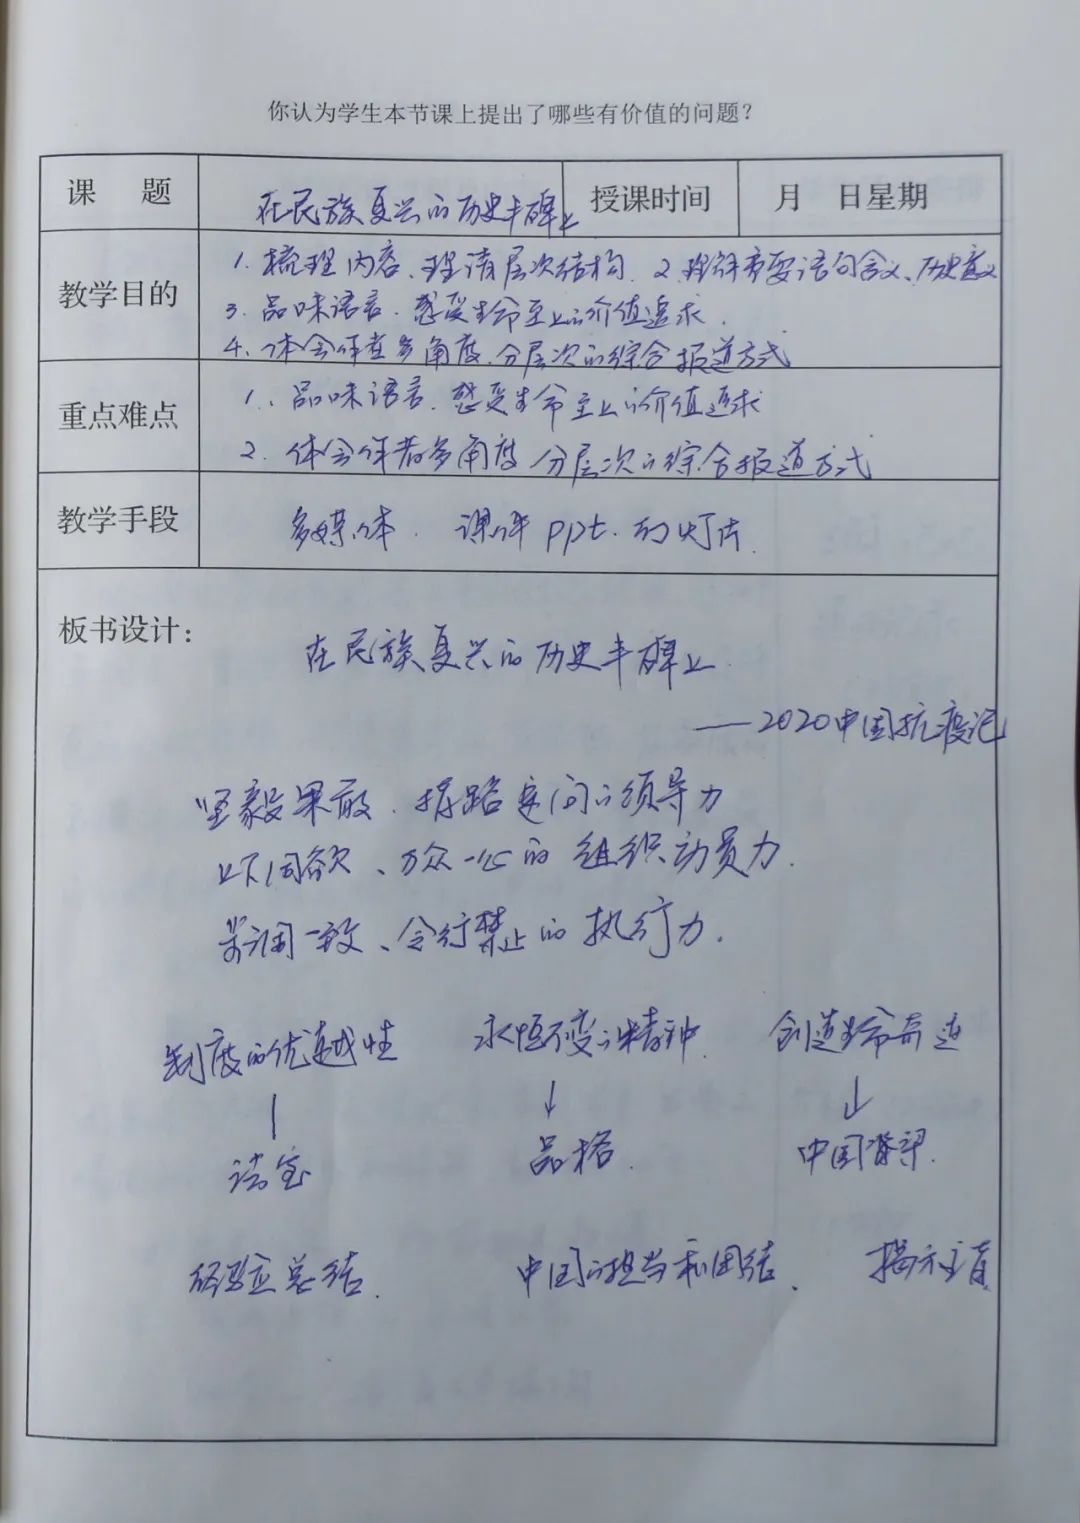 你认为学生本节课上提出了哪些有价值的问题？
课 题 在民族复兴的历史丰碑上 授课时间 月 日星期
教学目的 1. 梳理内容、理请层次结构. 2 理解重要语句含义、历史意义
3. 品味语言. 感受生命至上的价值追求.
4. 体会作者多角度、分层次的综合报道方式
重点难点 1.、品味语言. 感受生命至上的价值追求
2. 体会作者多角度 分层次的综合报道方式
教学手段 多媒体. 课件ppt. 幻灯片.
板书设计：
在民族复兴的历史丰碑上.
——2020中国抗疫记
坚毅果敢、 间的领导力
上下同欲、万众一心的 组织动员力.
步调一致、令行禁止的 执行力.
制度的优越性 永恒不变的精神. 创造生命奇迹
法宝 品格. 中国脊梁.
经验总结. 中国的担当和团结. 揭示主旨